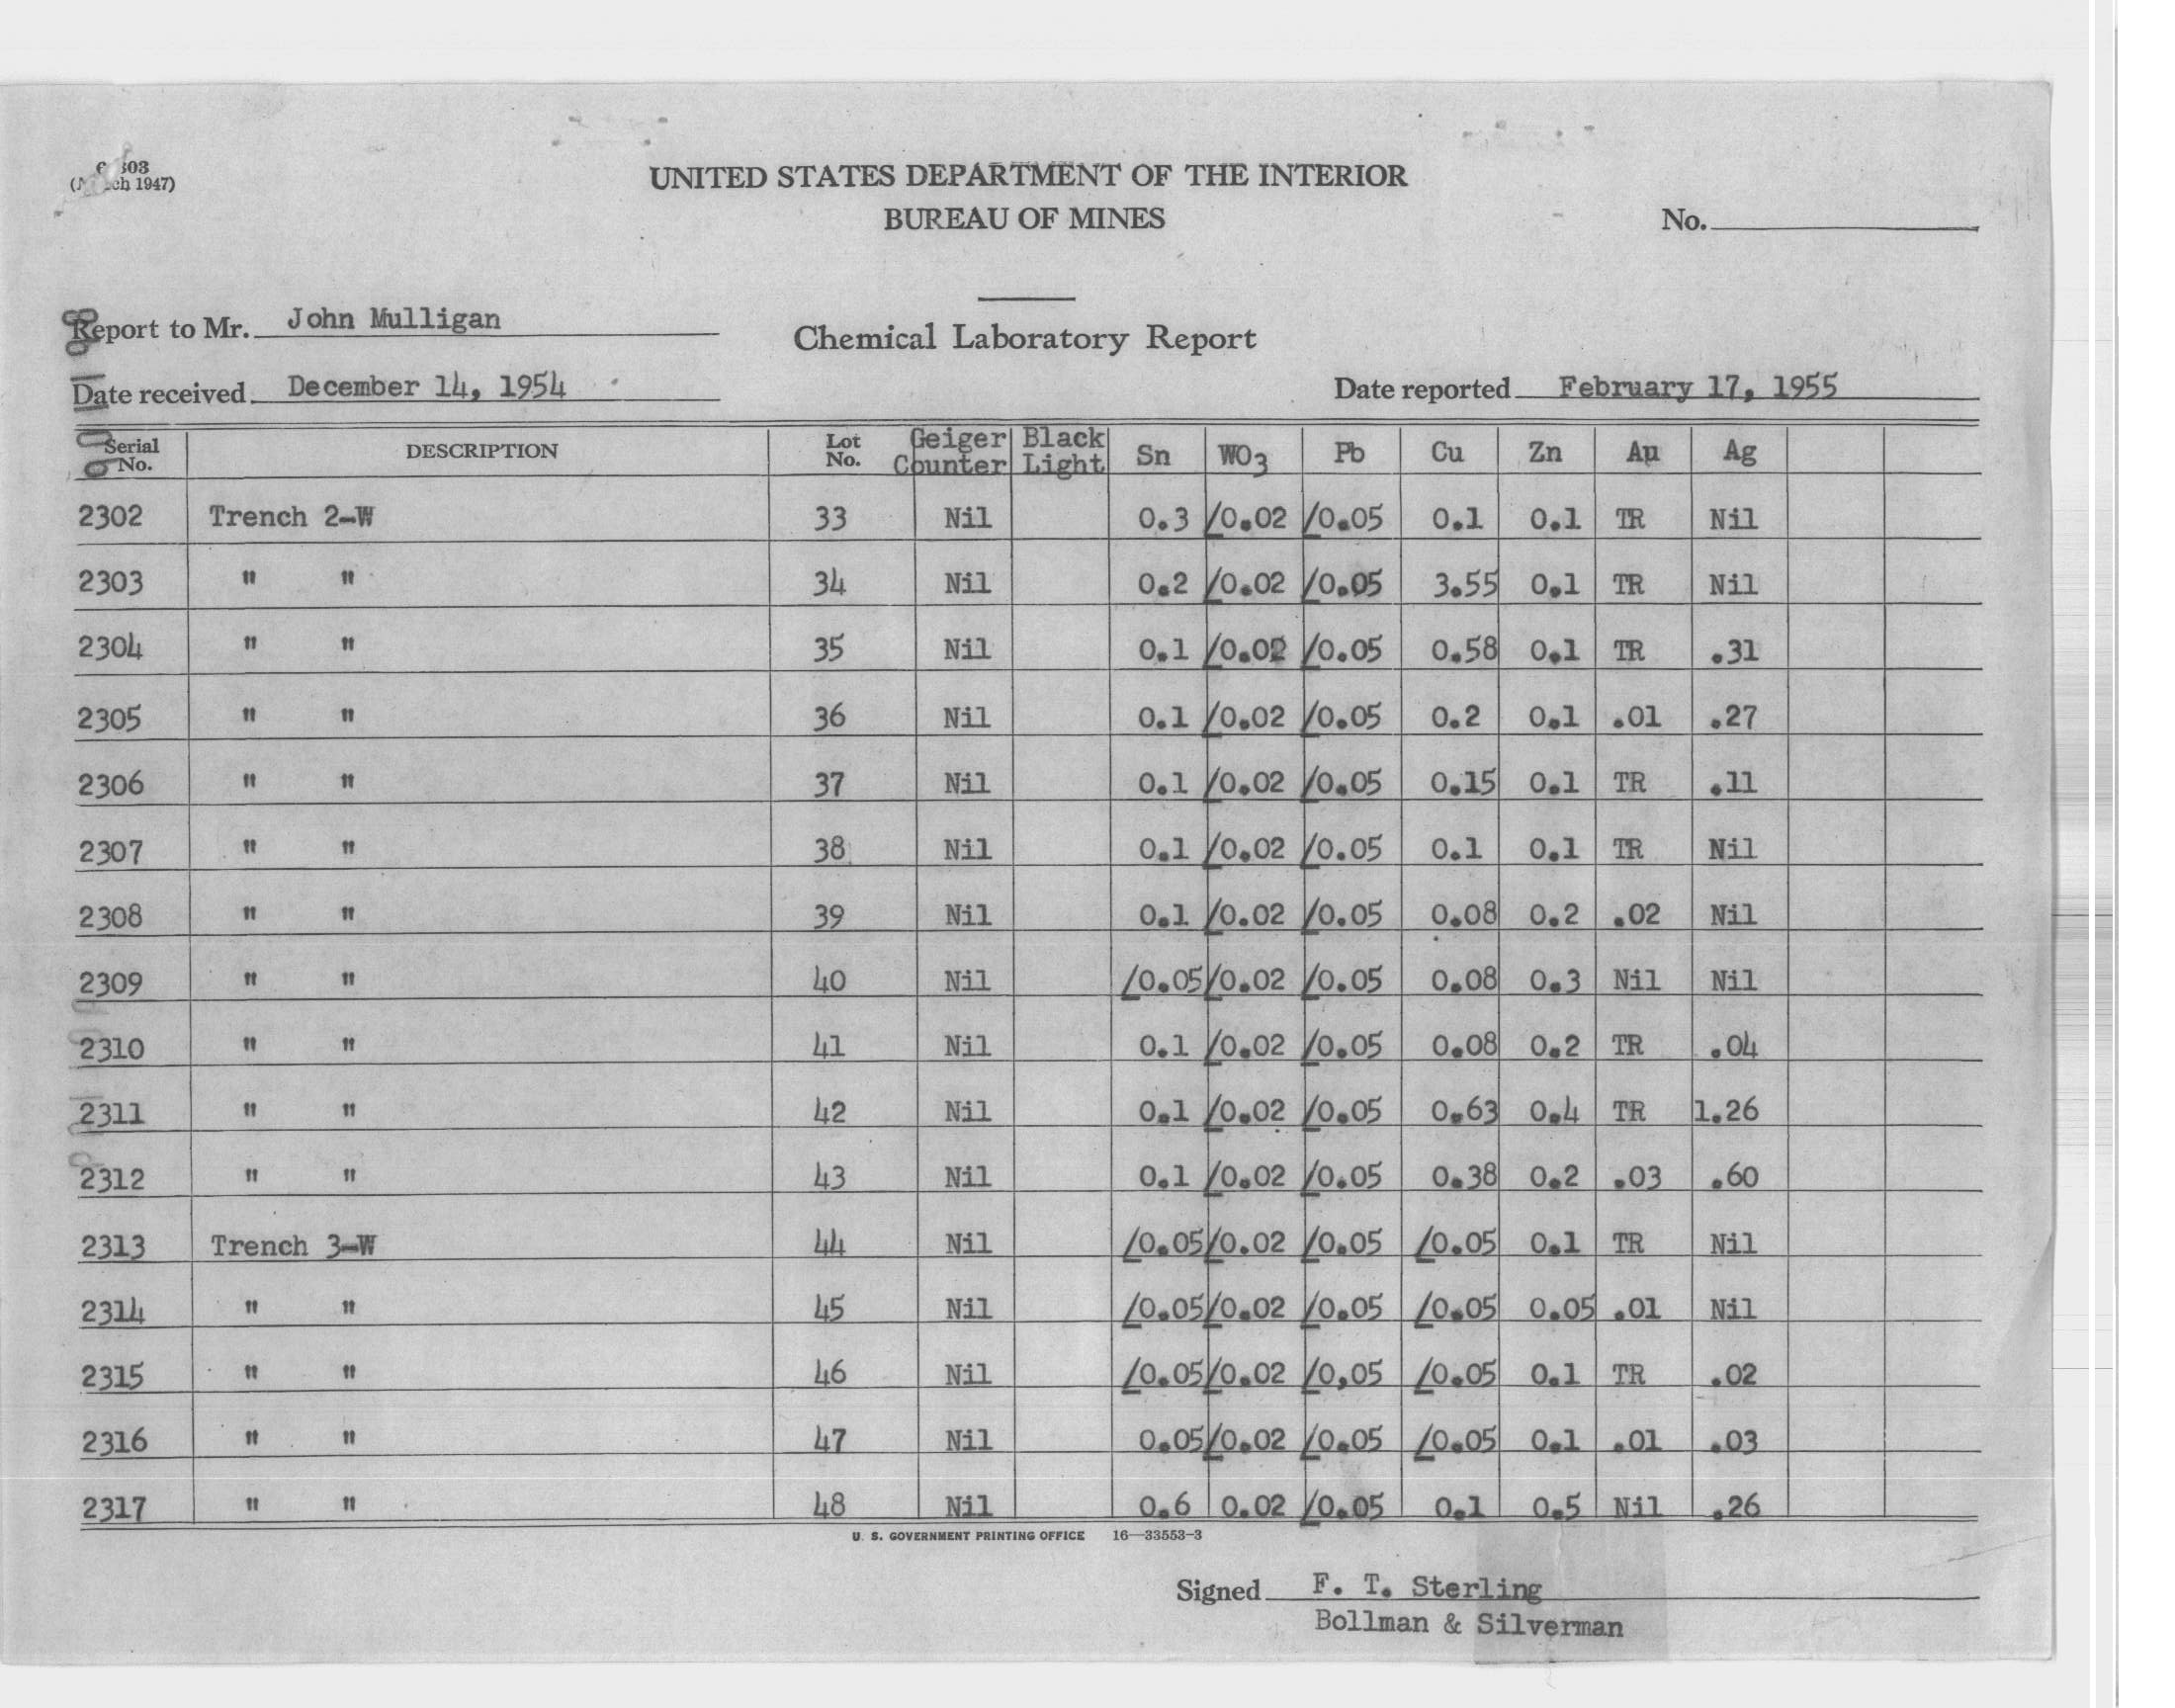 UNITED STATES DEPARTMENT OF THE INTERIOR
BUREAU OF MINES
No.
Report to Mr. John Mulligan
Chemical Laboratory Report
Date received December 14, 1954
Date reported February 17, 1955
Serial No. DESCRIPTION Lot No. Geiger Counter Black Light Sn WO3 Pb Cu Zn Au Ag
2302 Trench 2-W 33 Nil 0.3 /0.02 /0.05 0.1 0.1 TR Nil
2303 " " 34 Nil 0.2 /0.02 /0.05 3.55 0.1 TR Nil
2304 " " 35 Nil 0.1 /0.02 /0.05 0.58 0.1 TR .31
2305 " " 36 Nil 0.1 /0.02 /0.05 0.2 0.1 .01 .27
2306 " " 37 Nil 0.1 /0.02 /0.05 0.15 0.1 TR .11
2307 " " 38 Nil 0.1 /0.02 /0.05 0.1 0.1 TR Nil
2308 " " 39 Nil 0.1 /0.02 /0.05 0.08 0.2 .02 Nil
2309 " " 40 Nil /0.05 /0.02 /0.05 0.08 0.3 Nil Nil
2310 " " 41 Nil 0.1 /0.02 /0.05 0.08 0.2 TR .04
2311 " " 42 Nil 0.1 /0.02 /0.05 0.63 0.4 TR 1.26
2312 " " 43 Nil 0.1 /0.02 /0.05 0.38 0.2 .03 .60
2313 Trench 3-W 44 Nil /0.05 /0.02 /0.05 /0.05 0.1 TR Nil
2314 " " 45 Nil /0.05 /0.02 /0.05 /0.05 0.05 .01 Nil
2315 " " 46 Nil /0.05 /0.02 /0,05 /0.05 0.1 TR .02
2316 " " 47 Nil 0.05 /0.02 /0.05 /0.05 0.1 .01 .03
2317 " " 48 Nil 0.6 0.02 /0.05 0.1 0.5 Nil .26
U. S. GOVERNMENT PRINTING OFFICE 16—33553-3
Signed F. T. Sterling
Bollman & Silverman